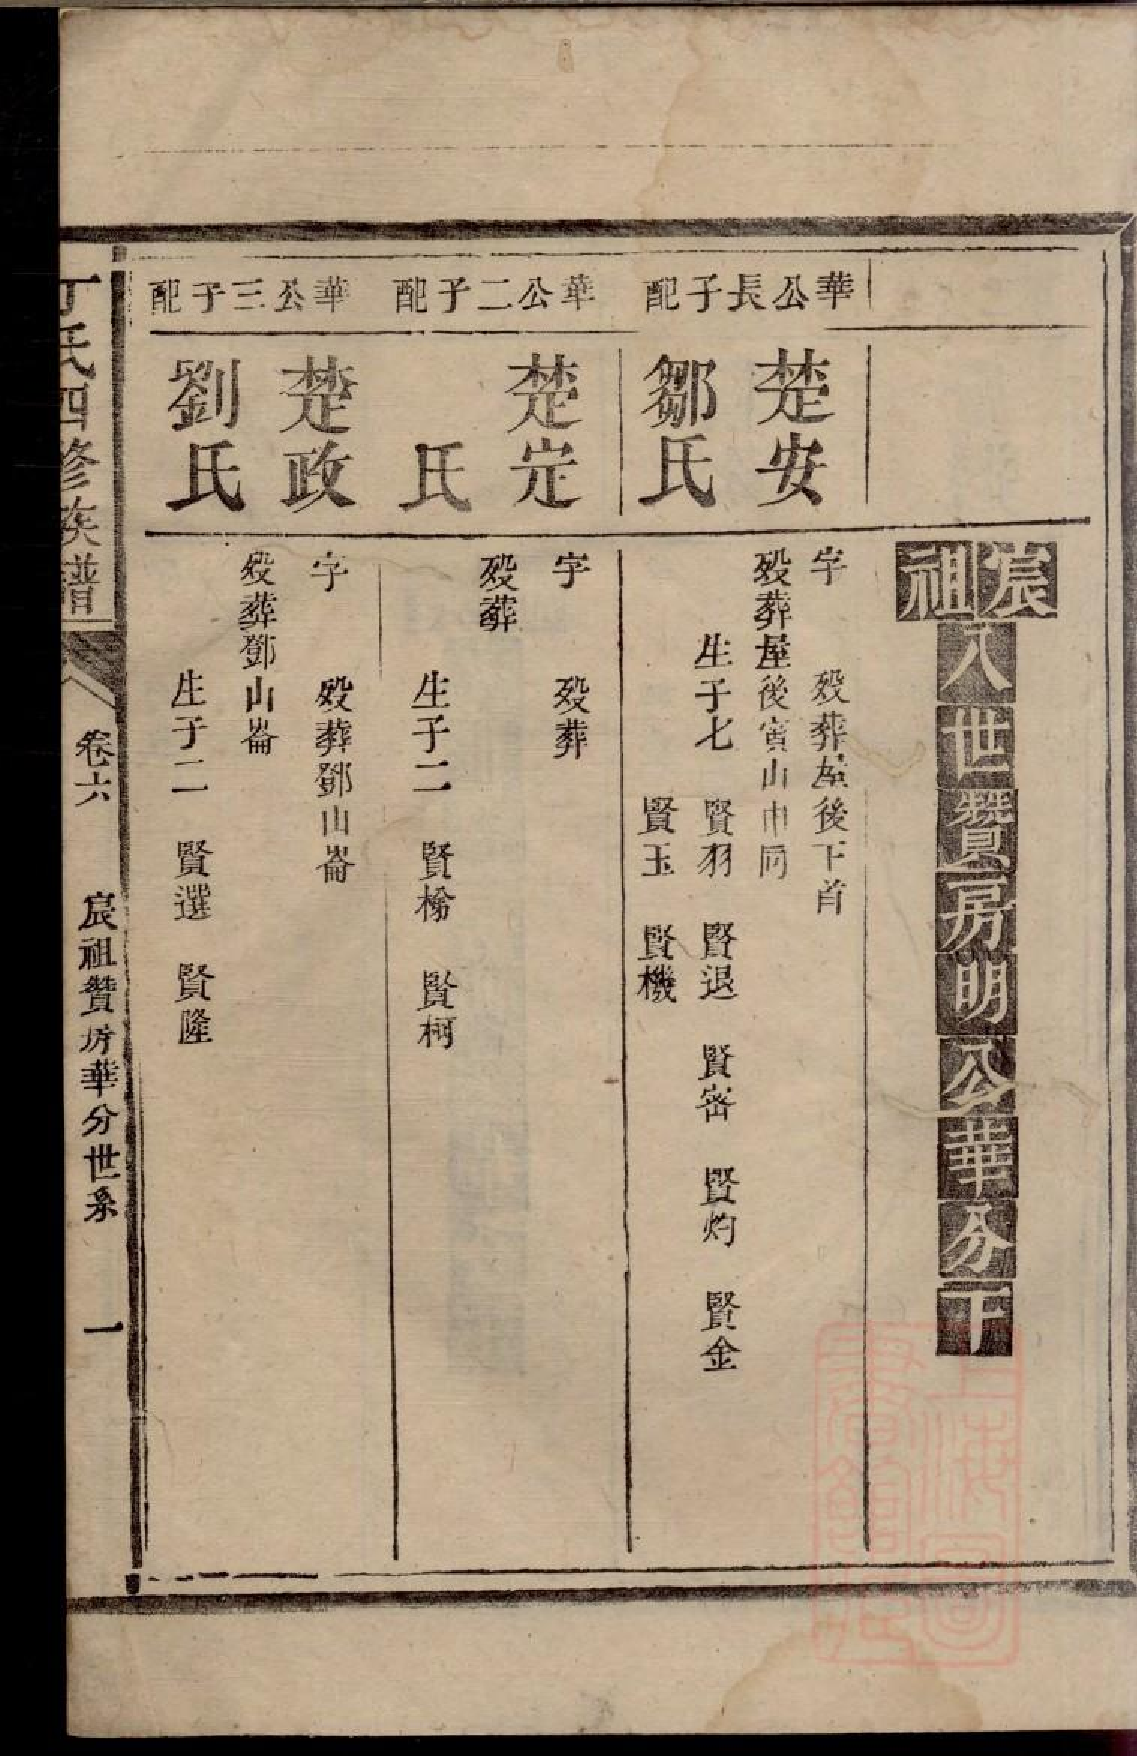 宸祖八世贊房明公華分下
華公長子配
楚安
鄒氏
字 歿葬屋後下首
歿葬屋後寅山巾同
生子七 賢羽 賢退 賢密 賢灼 賢金
賢玉 賢機
華公二子配
楚定
氏
字 歿葬
歿葬
生子二 賢榆 賢柯
華公三子配
楚政
劉氏
字 歿葬鄧山崙
歿葬鄧山崙
生子二 賢選 賢隆
丁氏四修族譜
卷六
宸祖贊房華分世系
一
上海圖書館藏